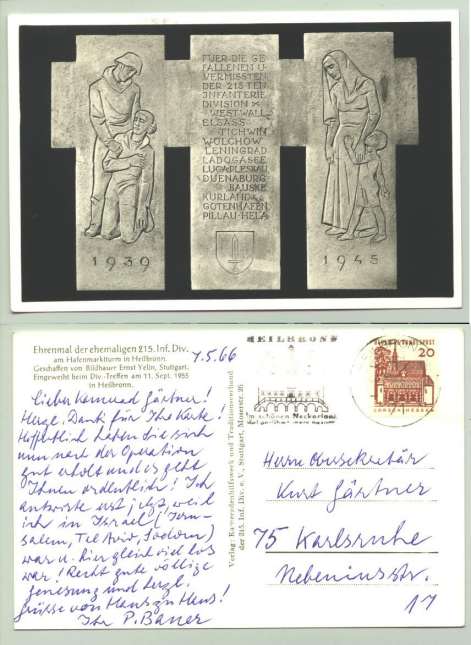 FUER DIE GE
FALLENEN U·
VERMISSTEN
DER 215TEN
INFANTERIE
DIVISION
WESTWALL
ELSASS
TICHWIN
WOLCHOW
LENINGRAD
LADOGASEE
LUGA PLESKAU
DUENABURG
BAUSKE
KURLAND
GOTENHAFEN
PILLAU-HELA
1939
1945
Ehrenmal der ehemaligen 215. Inf. Div.
am Hafenmarktturm in Heilbronn.
Geschaffen von Bildhauer Ernst Yelin, Stuttgart.
Eingeweiht beim Div.-Treffen am 11. Sept. 1955
in Heilbronn.
7.5.66
Lieber Kamerad Gärtner!
Herzl. Dank für Ihre Karte!
Hoffentlich haben Sie sich
nun nach der Operation
gut erholt und es geht
Ihnen ordentlich! Ich
antworte erst jetzt, weil
ich in Israel (Jeru-
salem, Tel Aviv, Sodom)
war u. hier gleich viel los
war! Recht gute völlige
Genesung und herzl.
Grüsse von Haus zu Haus!
Ihr P. Bauer
Verlag: Kameradenhilfswerk und Traditionsverband
der 215. Inf. Div. e. V., Stuttgart, Moserstr. 26
HEILBRONN
Im schönen Neckartal
DEUTSCHE BUNDESPOST
20
LORSCH/HESSEN
Herrn Obersekretär
Kurt Gärtner
75 Karlsruhe
Nebeniusstr.
17